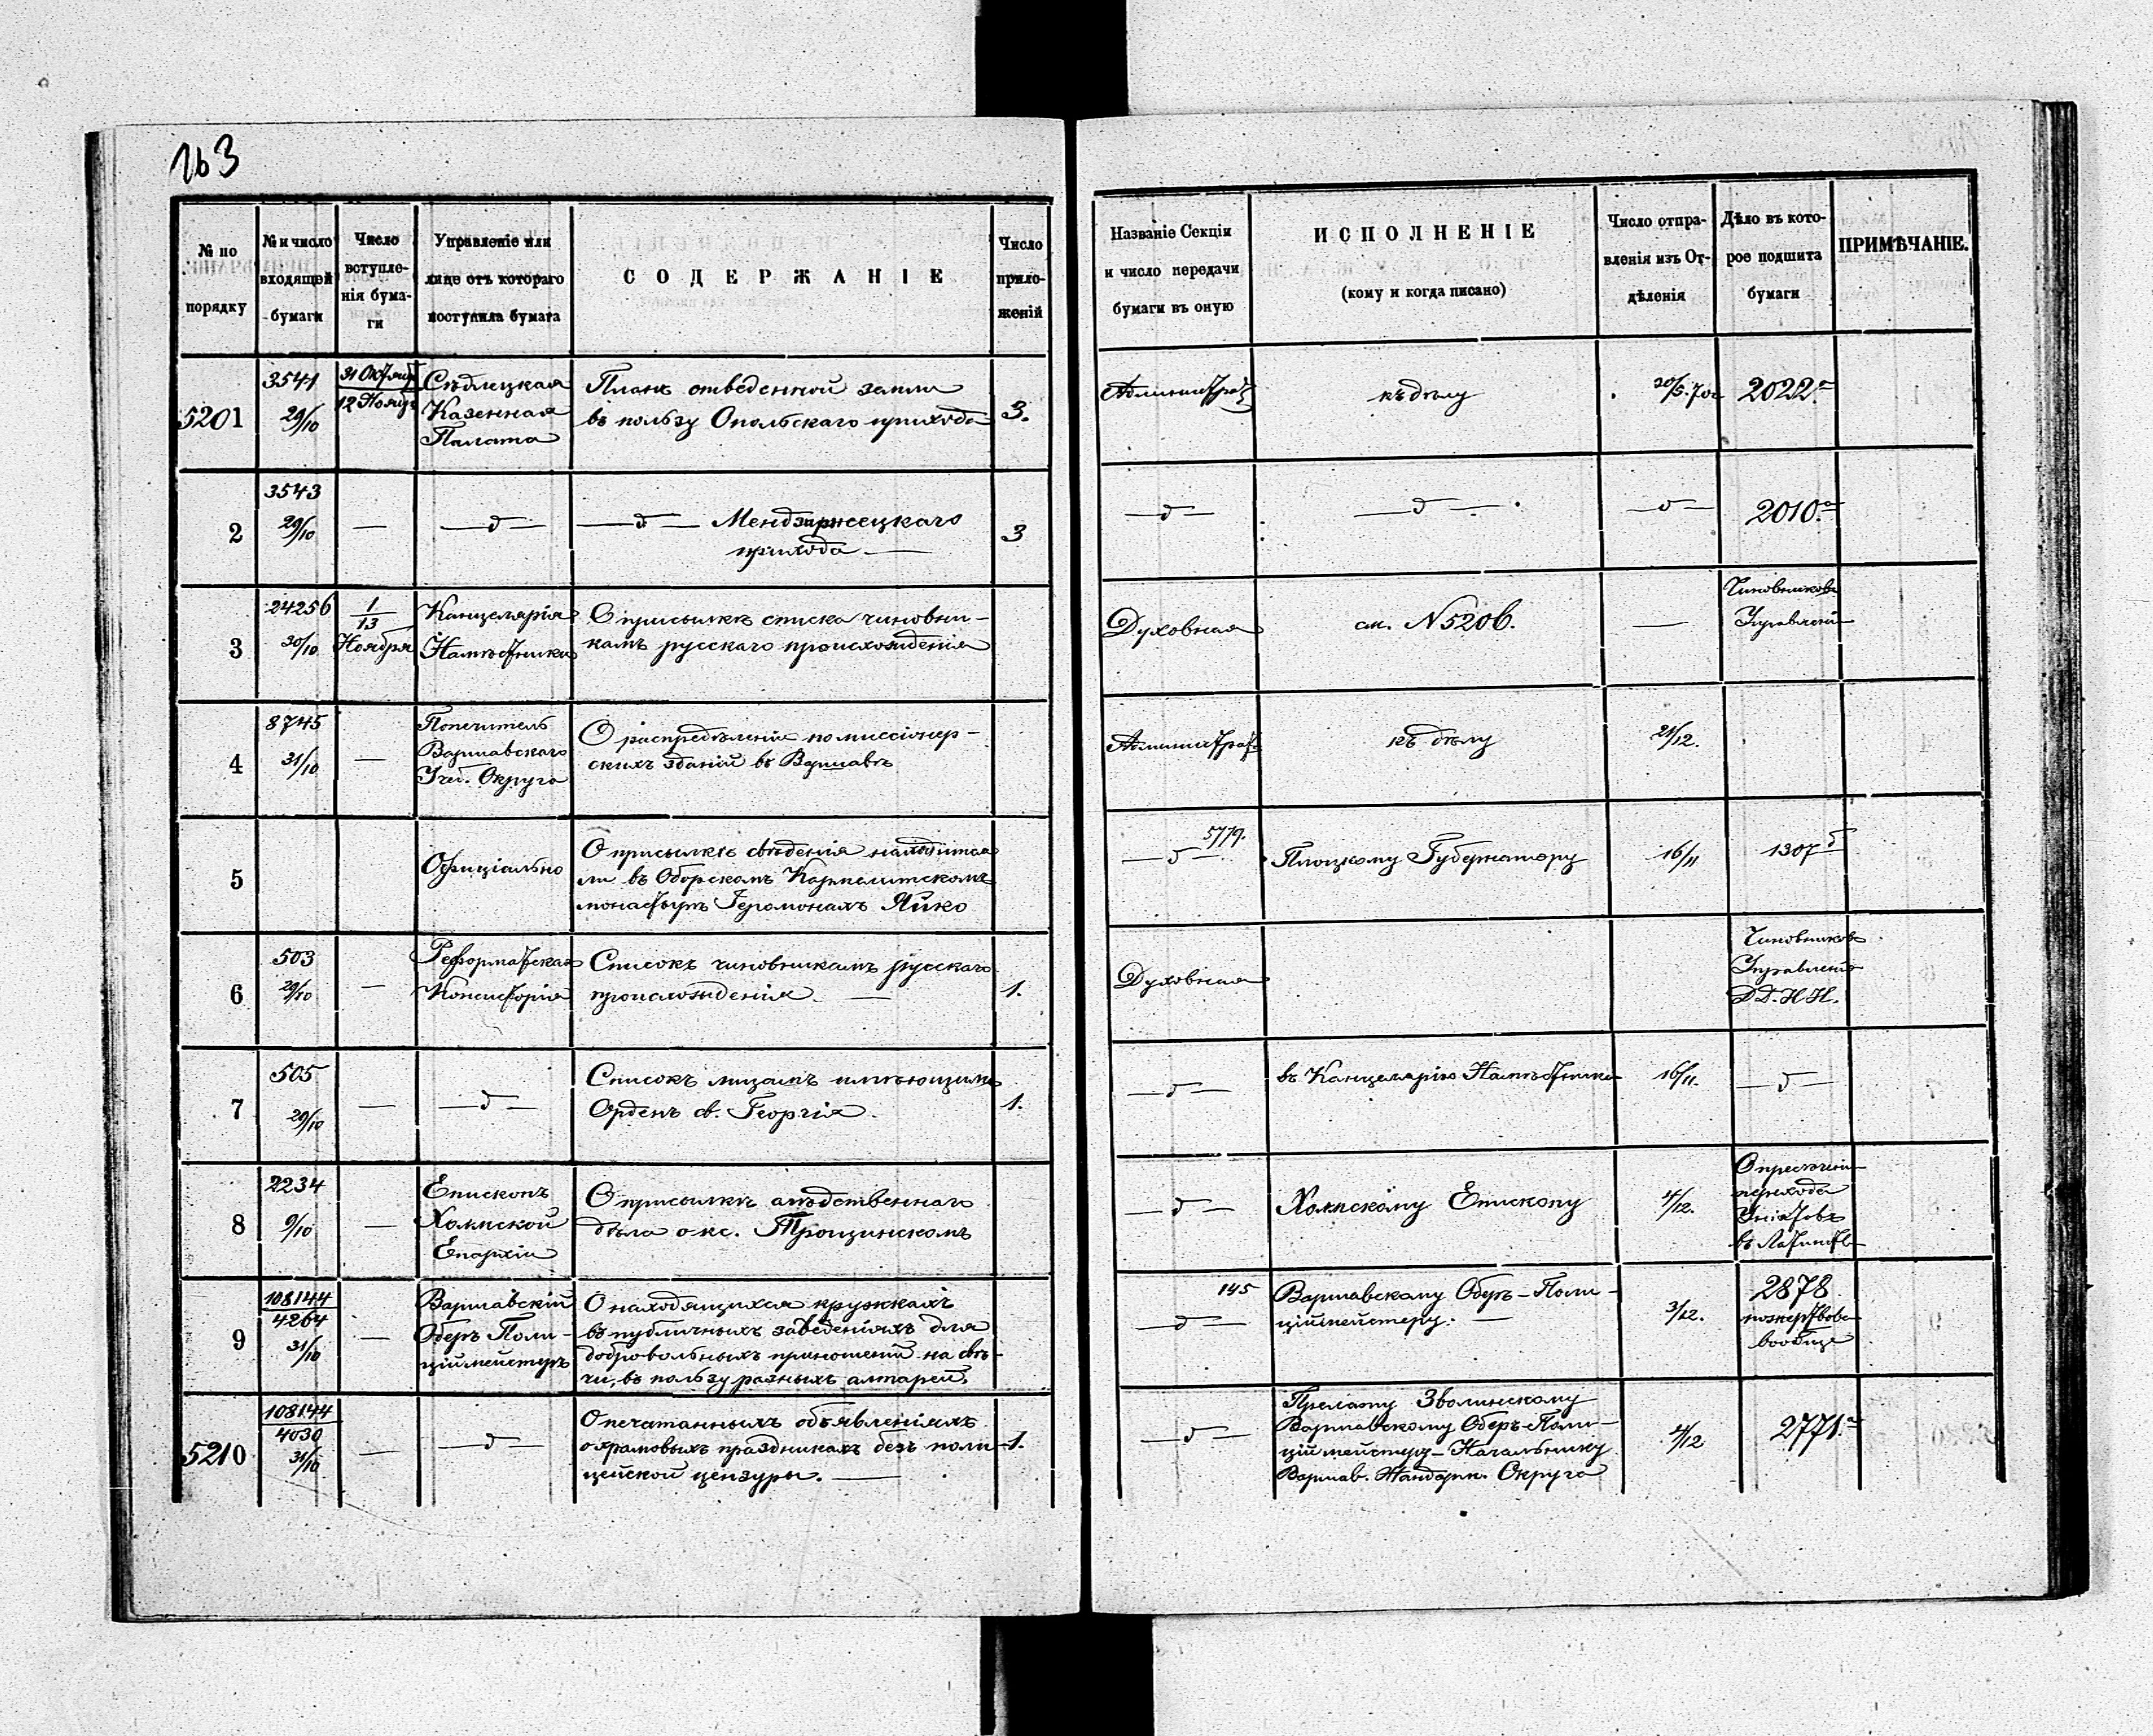 163
№ по порядку
№ и число входящей бумаги
Число вступле-нія бума-ги
Управленіе или лице отъ котораго поступила бумага
СОДЕРЖАНІЕ
Число прило-женій
Названіе Секціи и число передачи бумаги въ оную
ИСПОЛНЕНІЕ
(кому и когда писано)
Число отпра-вленія изъ От-дѣленія
Дѣло въ кото-рое подшита бумаги
ПРИМѢЧАНІЕ.
5201
3541
29/10
31 Октяб
12 Нояб
Сѣдлецкая
Казенная
Палата
Планъ отведенной земли
въ пользу Опольскаго прихода
3.
къ дѣлу
2022
2
3543
29/10
—
—д—
—д— Мендзиржецкаго
прихода —
3
—д—
—д—
—д—
2010
3
24256
30/10
1/13
Ноября
Канцелярія
Намѣстника
О присылкѣ списка чиновни-
камъ русскаго происхожденія
Духовная
см. N 5206.
—
Чиновниковъ
Управленія
4
8745
31/10
—
Попечитель
Варшавскаго
Учеб. Округа
О распредѣленіи по миссіонер-
скихъ зданій въ Варшавѣ
къ дѣлу
21/12.
5
Офиціально
О присылкѣ свѣденія находится
ли въ Оборскомъ Кармелитскомъ
монастырѣ Іеромонахъ Яйко
—д—
5779.
Плоцкому Губернатору
16/11
1307 б
6
503
29/10
—
Реформатская
Консисторія
Списокъ чиновникамъ русскаго
происхожденія. —
1.
Духовная
Чиновниковъ
Управленія
Д.Д. И И.
7
505
29/10
—
—д—
Списокъ лицамъ имѣющимъ
Орденъ св. Георгія.
1.
—д—
въ Канцелярію Намѣстника
16/11.
—д—
8
2234
9/10
—
Епископъ
Холмской
Епархіи
О присылкѣ слѣдственнаго
дѣла о кс. Трощинскомъ
—д—
Холмскому Епископу
4/12.
О пресѣченіи
перехода
Уніятовъ
въ Латинст
9
108144
4264
31/10
—
Варшавскій
Оберъ Поли-
ціймейстеръ
О находящихся кружкахъ
въ публичныхъ заведеніяхъ для
добровольныхъ приношеній на свѣ-
чи, въ пользу разныхъ алтарей.
—д—
145
Варшавскому Оберъ-Поли-
ціймейстеру. —
3/12.
2878
пожертвова
вообще
5210
108144
4030
31/10
—
—д—
О печатанныхъ объявленіяхъ
о храмовыхъ праздникахъ безъ поли
цейской цензуры. —
1.
—д—
Прелату Зволинскому
Варшавскому Оберъ-Поли-
ціймейстеру-Начальнику
Варшав. Жандарм. Округа
4/12
2771